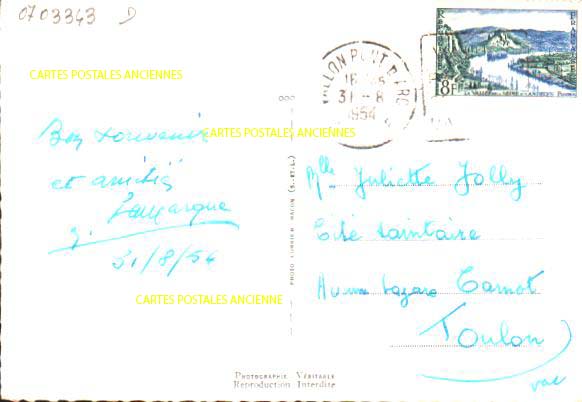 0703343 D
CARTES POSTALES ANCIENNES
RÉPUBLIQUE FRANÇAISE
8F
LA VALLÉE DE LA SEINE AUX ANDELYS
VALLON PONT D'ARC
31-8
1954
Bon souvenir
CARTES POSTALES ANCIENNES
et amitiés
Lamarque
31/8/54
Mlle Juliette Jolly
Cité Laintaire
Avenue Lazare Carnot
Toulon
Var
CARTES POSTALES ANCIENNE
PHOTO COMBIER MACON (S.-ET-L.)
PHOTOGRAPHIE VÉRITABLE
Reproduction Interdite